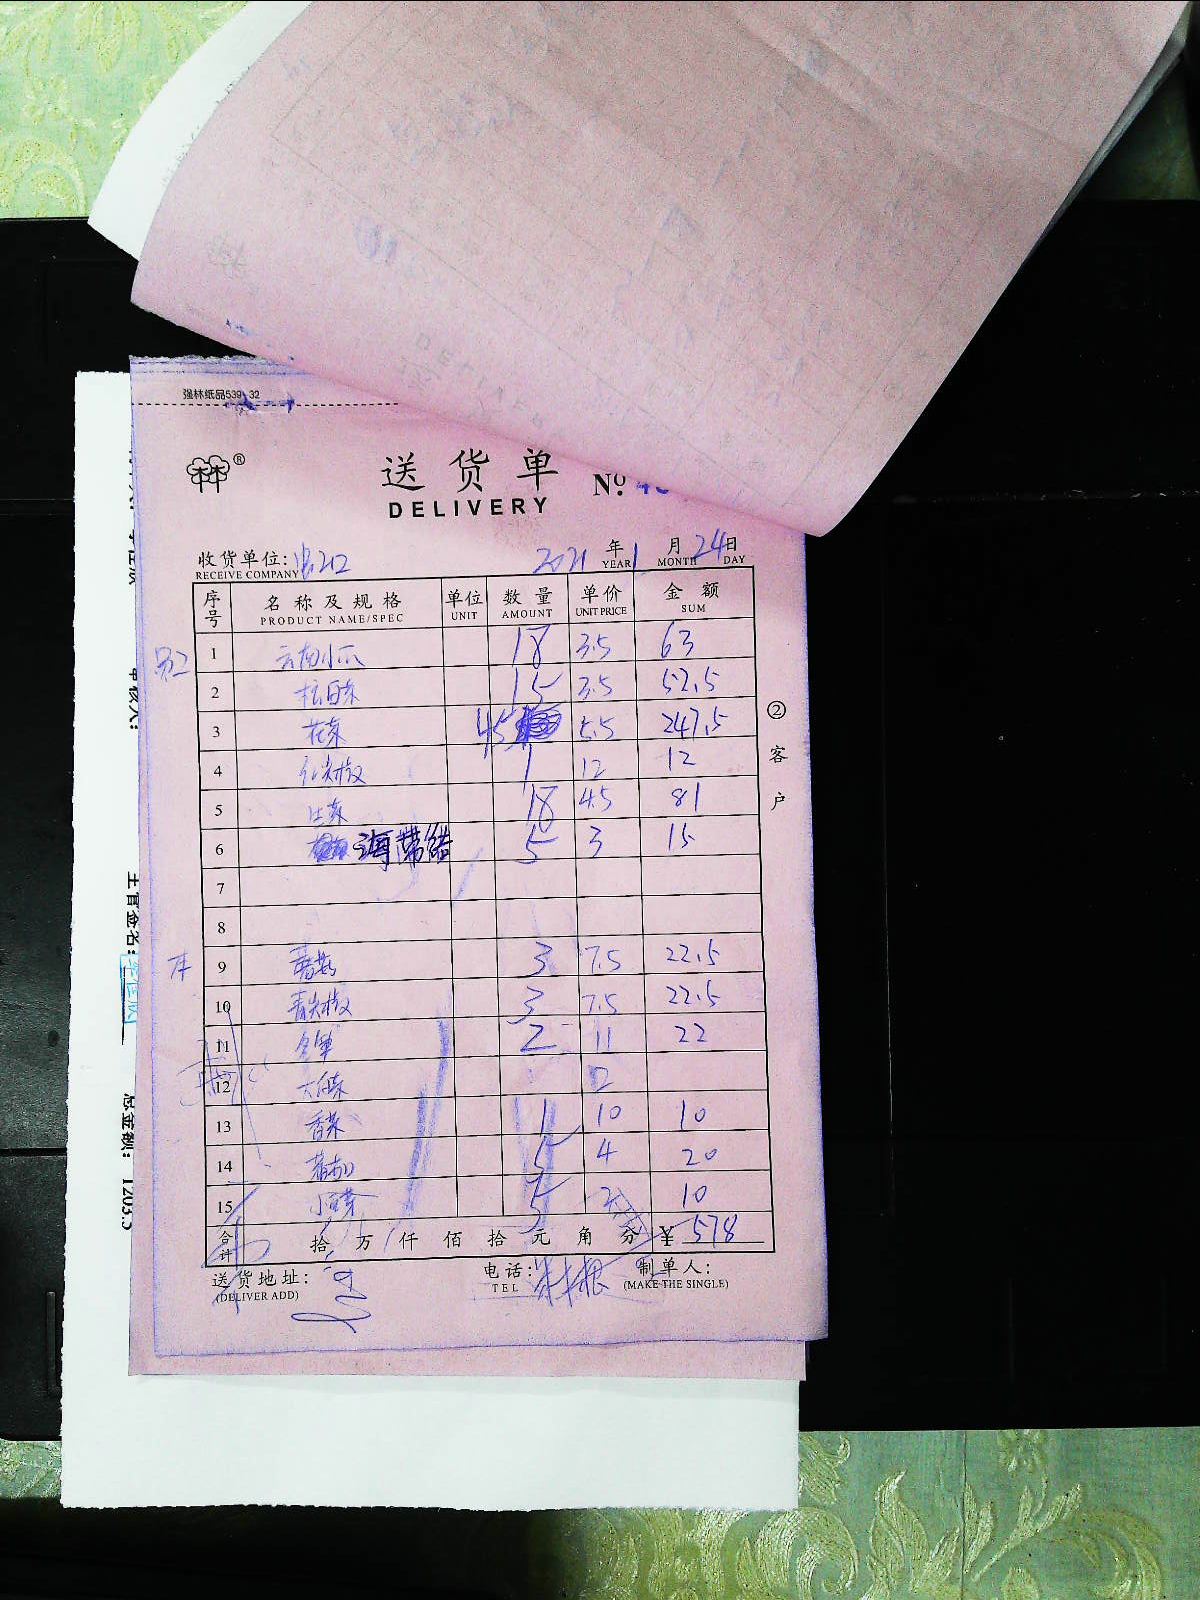 强林纸品539-32
送货单
DELIVERY
№:
收货单位: 2021年1月24日
RECEIVE COMPANY YEAR MONTH DAY
序号 名称及规格 单位 数量 单价 金额
PRODUCT NAME/SPEC UNIT AMOUNT UNIT PRICE SUM
1 云南小瓜 18 3.5 63
2 15 3.5 52.5
3 花菜 45 5.5 247.5
4 红尖椒 1 12 12
5 18 4.5 81
6 海带结 5 3 15
7
8
9 3 7.5 22.5
10 青尖椒 3 7.5 22.5
11 2 11 22
12 2
13 香菜 1 10 10
14 5 4 20
15 5 2 10
合计 拾万仟佰拾元角分 ¥ 578
送货地址: 电话: 制单人:
(DELIVER ADD) TEL (MAKE THE SINGLE)
② 客户
审核人:
主管签名:
总金额: 1203.5